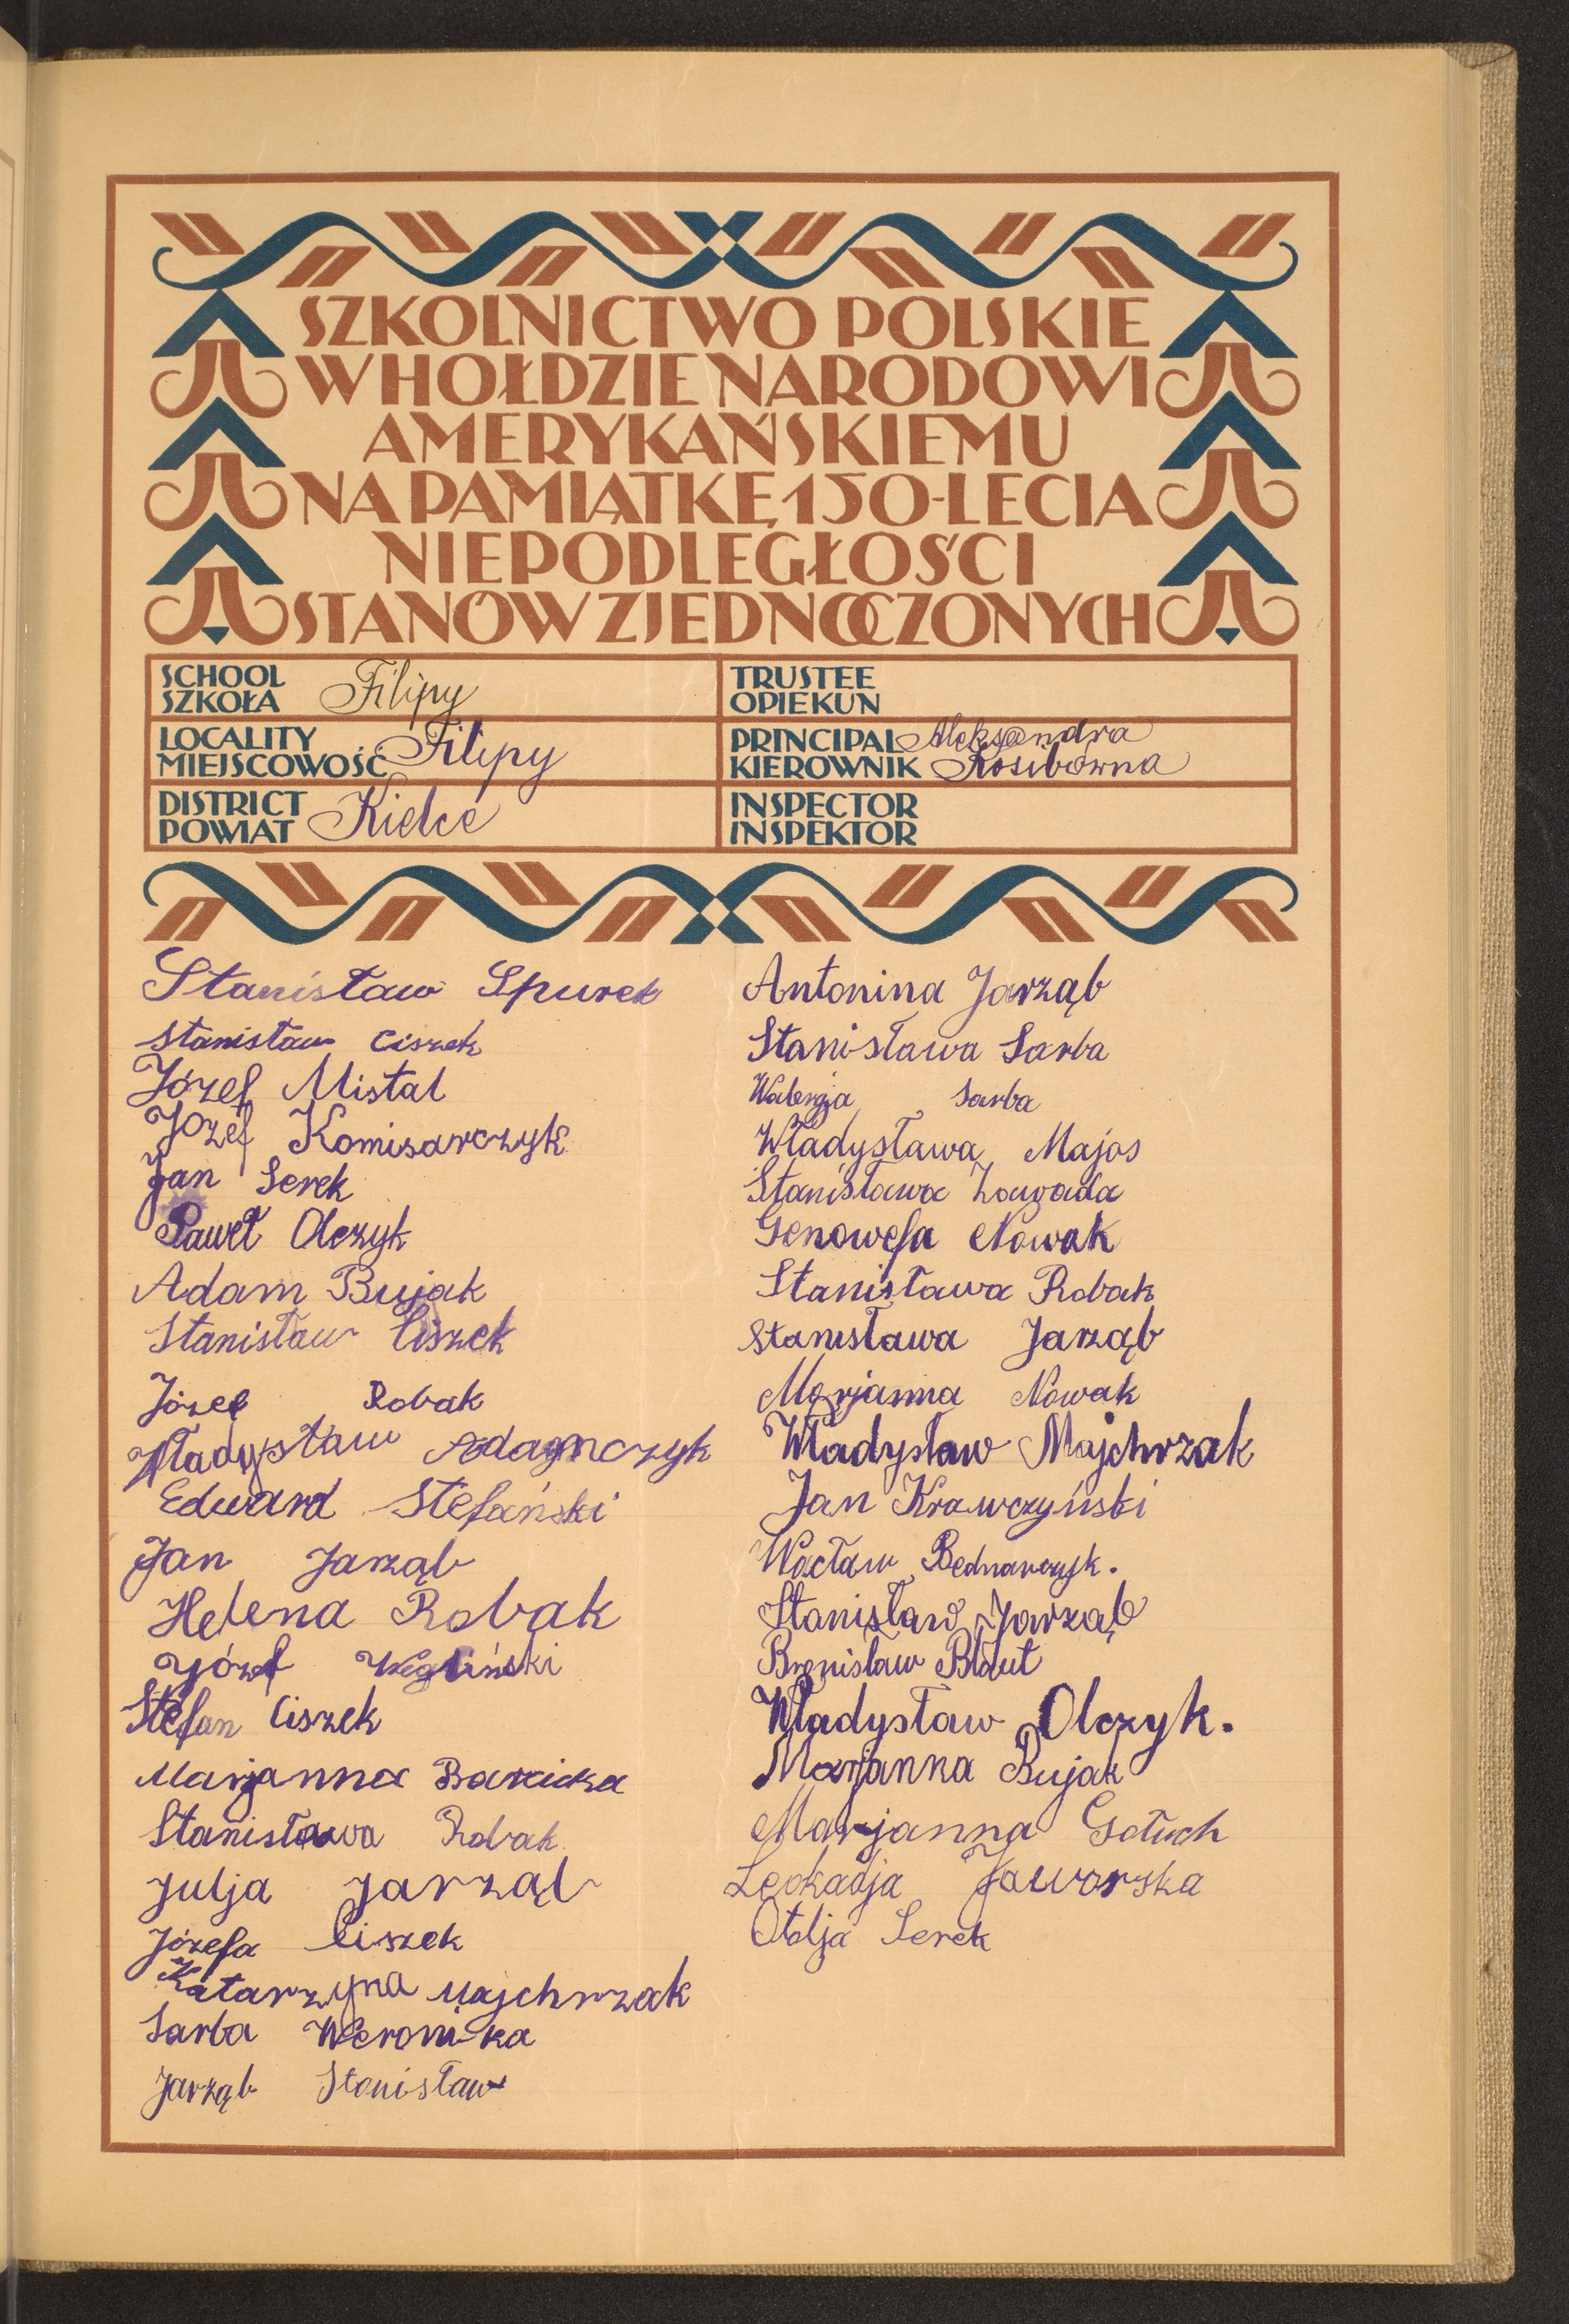 SZKOLNICTWO POLSKIE
W HOŁDZIE NARODOWI
AMERYKAŃSKIEMU
NA PAMIĄTKĘ 150-LECIA
NIEPODLEGŁOŚCI
STANÓW ZJEDNOCZONYCH
SCHOOL
SZKOŁA Filipy
TRUSTEE
OPIEKUN
LOCALITY
MIEJSCOWOŚĆ Filipy
PRINCIPAL Aleksandra
KIEROWNIK Kosibowna
DISTRICT
POWIAT Kielce
INSPECTOR
INSPEKTOR
Stanisław Spurek
Stanisław Ciszek
Józef Mistal
Józef Komisarczyk
Jan Serek
Paweł Olczyk
Adam Bujak
Stanisław Ciszek
Józef Robak
Władysław Adamczyk
Edward Stefański
Jan Jarząb
Helena Robak
Józef Węgliński
Stefan Ciszek
Marjanna Barucka
Stanisława Robak
Julja Jarząb
Józefa Ciszek
Katarzyna Majchrzak
Sarba Weronika
Jarząb Stanisław
Antonina Jarząb
Stanisława Sarba
Walerja Sarba
Władysława Majos
Stanisława Zawada
Genowefa Nowak
Stanisława Robak
Stanisława Jarząb
Marjanna Nowak
Władysław Majchrzak
Jan Krawczyński
Wacław Bednarczyk.
Stanisław Jarząb
Bronisław Błaut
Władysław Olczyk.
Marjanna Bujak
Marjanna Gołuch
Leokadja Jaworska
Otolja Serek